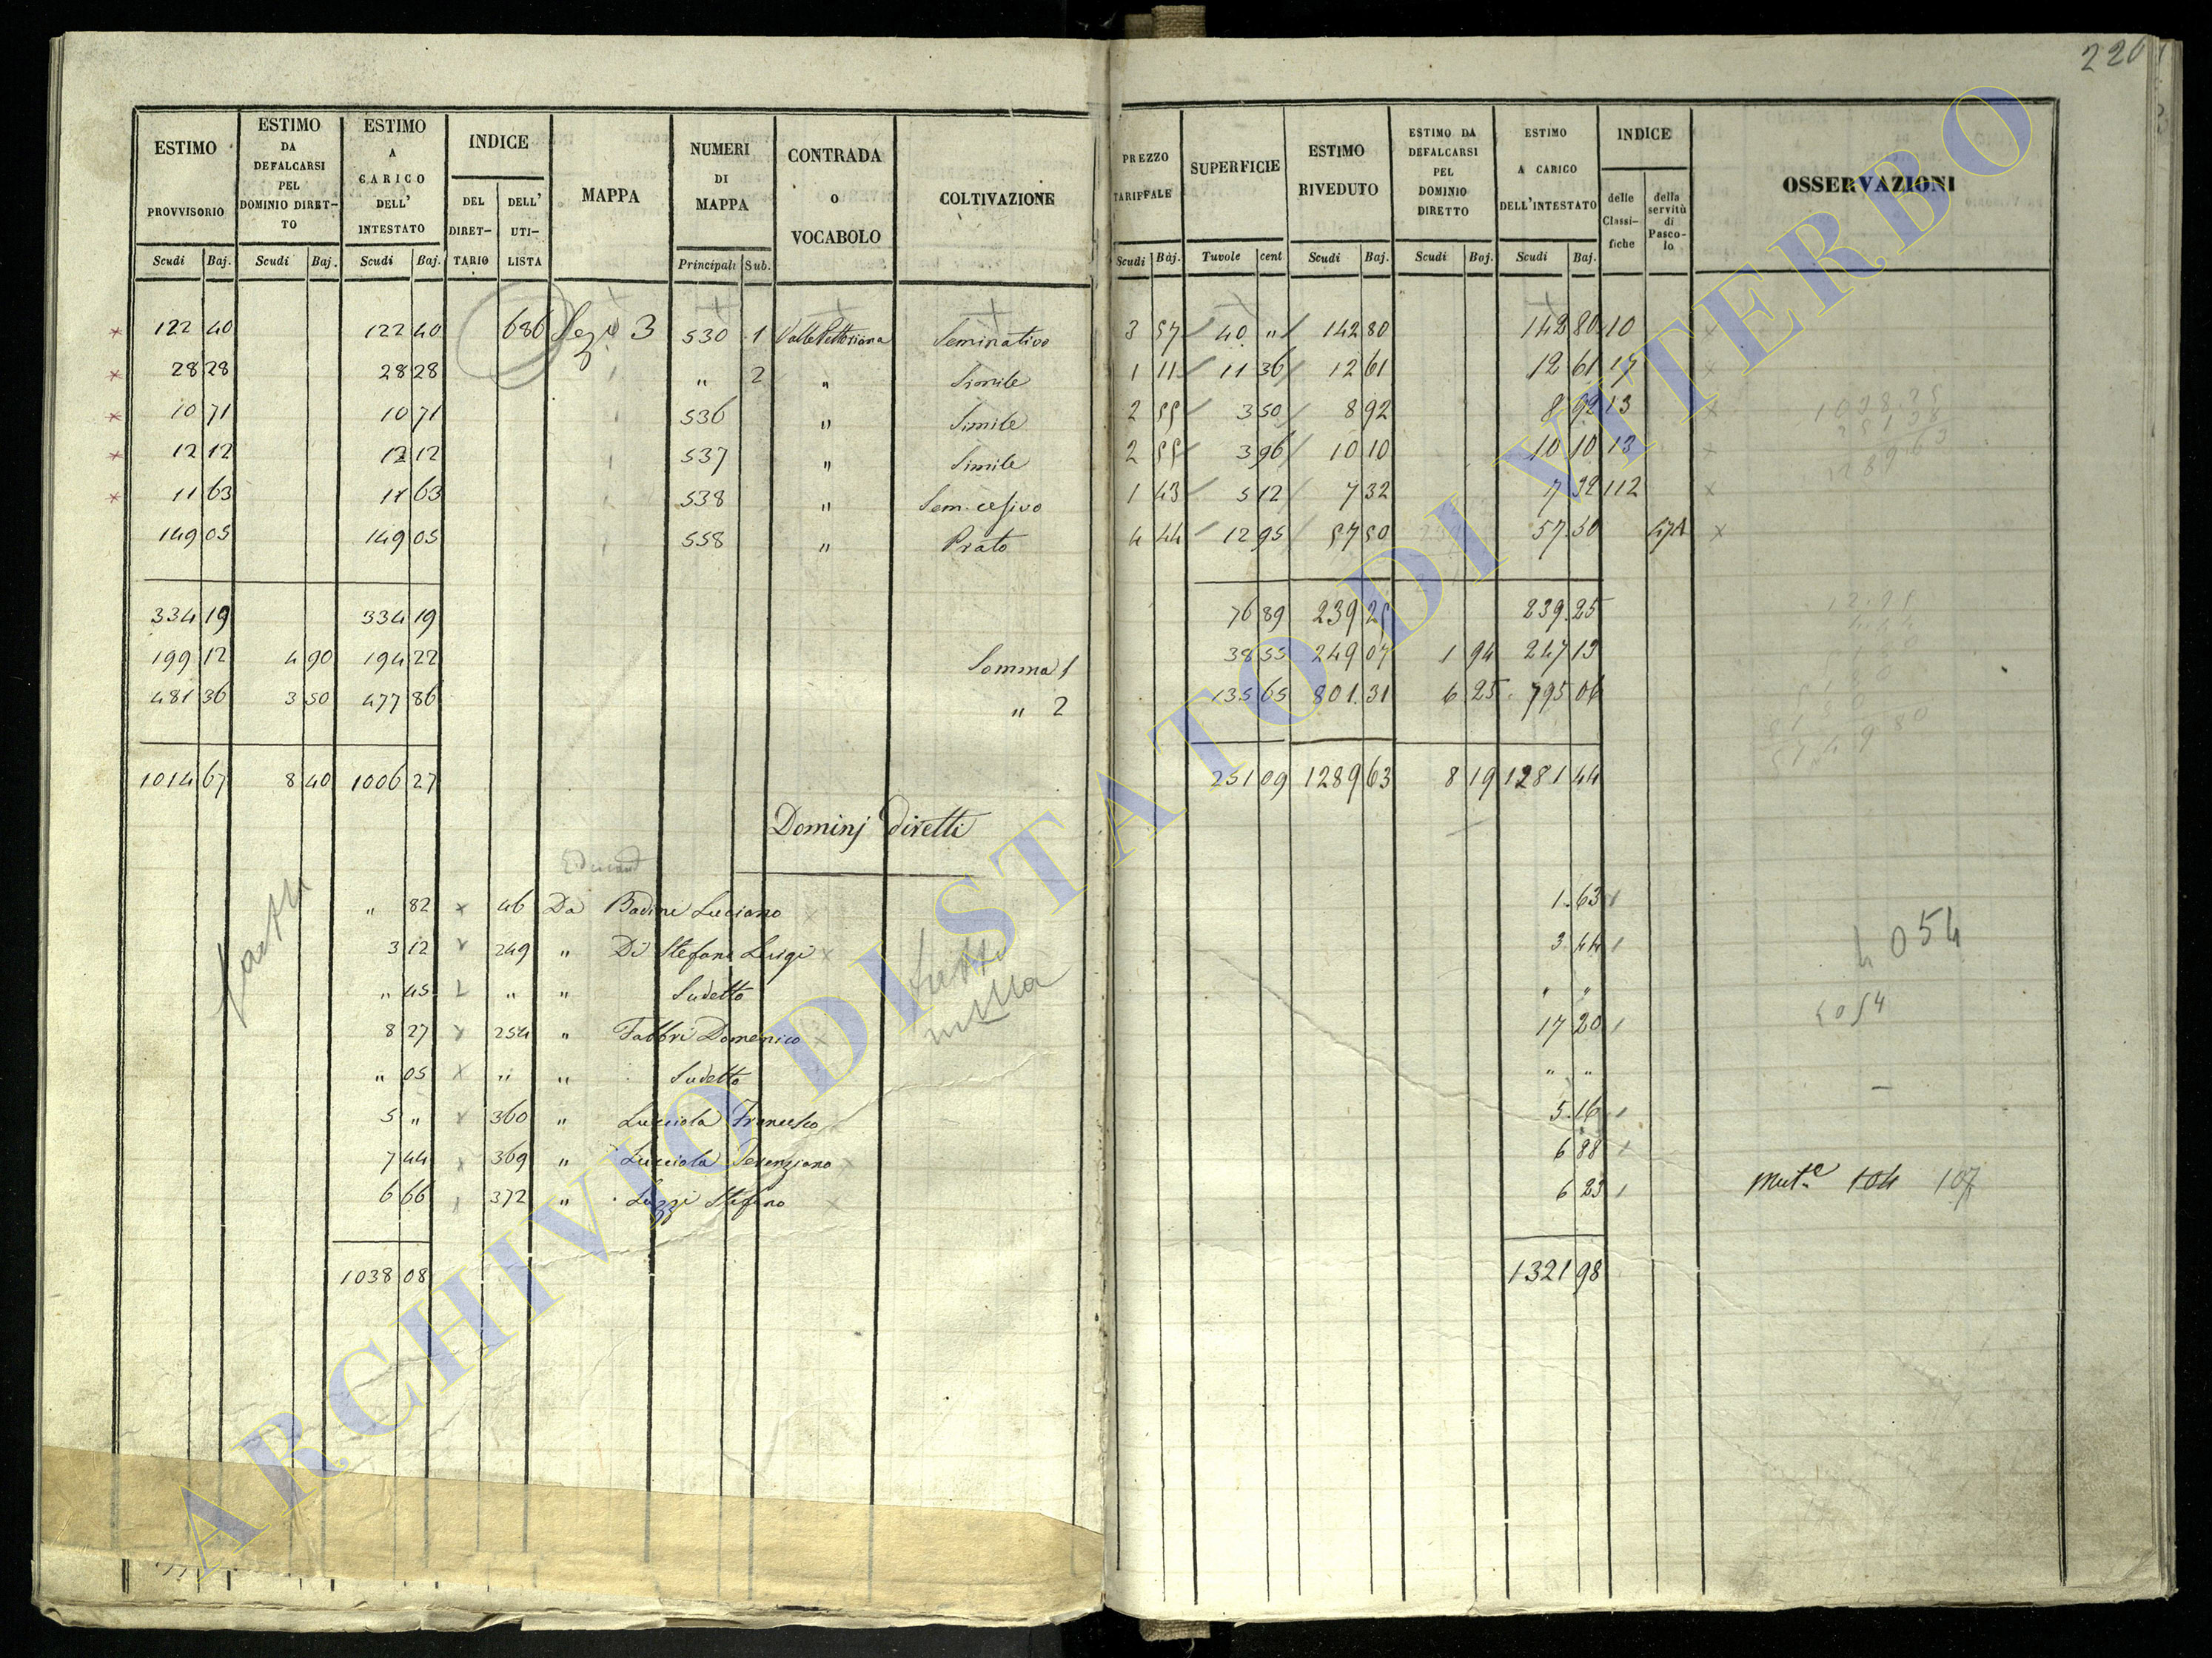 220
ESTIMO PROVVISORIO | ESTIMO DA DEFALCARSI PEL DOMINIO DIRET-TO | ESTIMO A CARICO DELL' INTESTATO | INDICE DEL DIRET-TARIO | DELL' UTI-LISTA | MAPPA | NUMERI DI MAPPA | CONTRADA o VOCABOLO | COLTIVAZIONE | PREZZO TARIFFALE | SUPERFICIE | ESTIMO RIVEDUTO | ESTIMO DA DEFALCARSI PEL DOMINIO DIRETTO | ESTIMO A CARICO DELL'INTESTATO | INDICE delle Classi-fiche | della servitù di Pasco-lo | OSSERVAZIONI
Scudi | Baj. | Scudi | Baj. | Scudi | Baj. | Principali | Sub. | Scudi | Baj. | Tavole | cent | Scudi | Baj. | Scudi | Baj. | Scudi | Baj.
122 40 | 122 40 | 686 | Sezi 3 | 530 | 1 | | Seminativo | 3 57 | 40 " | 142 80 | 142 80 | 10
28 28 | 28 28 | " | 2 | " | Simile | 1 11 | 11 36 | 12 61 | 12 61 | 17
10 71 | 10 71 | 536 | " | Simile | 2 55 | 3 50 | 8 92 | 8 92 | 13
12 12 | 12 12 | 537 | " | Simile | 2 55 | 3 96 | 10 10 | 10 10 | 13
11 63 | 11 63 | 538 | " | Sem. cesivo | 1 43 | 5 12 | 7 32 | 7 32 | 112
149 05 | 149 05 | 558 | " | Prato | 4 44 | 12 95 | 57 50 | 57 50
334 19 | 334 19 | 76 89 | 239 25 | 239 25
199 12 | 4 90 | 194 22 | Somma 1 | 38 55 | 249 07 | 1 94 | 247 13
481 36 | 3 50 | 477 86 | " 2 | 135 65 | 801 31 | 6 25 | 795 06
1014 67 | 8 40 | 1006 27 | 251 09 | 1289 63 | 8 19 | 1281 44
Dominj diretti
" 82 | 46 | Da Badini Luciano | 1 63
3 12 | 249 | " Di Stefano Luigi | 3 44 | 4054
" 45 | " | " Sudetto | " "
8 27 | 254 | " Fabbri Domenico | 17 20 | 4054
" 05 | " | " Sudetto | " "
5 " | 360 | " Lucciola Francesco | 5 16
7 44 | 369 | " Lucciola Terenziano | 6 88
6 66 | 372 | " Luzzi Stefano | 6 23 | Mut.e 104 107
tutti nulla
1038 08 | 1321 98
ARCHIVIO DI STATO DI VITERBO